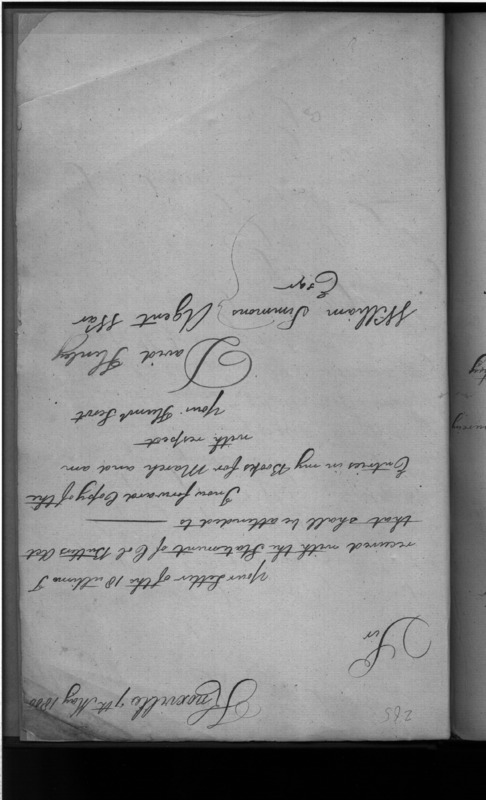 265
Knoxville 7th May 1800
Sir
Your Letter of the 18 ultimo I
received with the Statement of Col Butlers Act
that shall be attended to
I now forward Copy of the
Entries in my Books for March and am
with respect
Your Humb Servt
David Henley
Agent War
William Simmons
Esqr